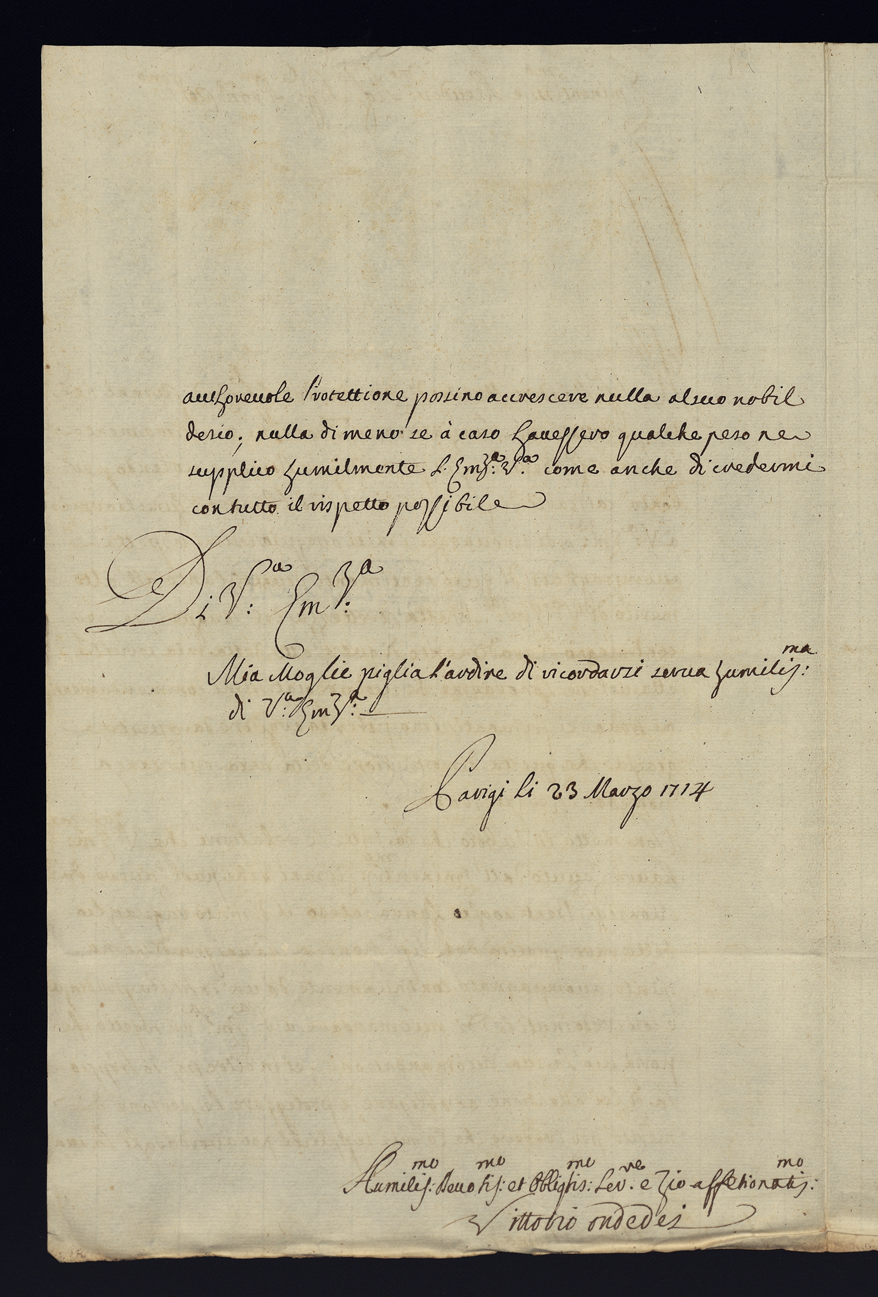 authoreuole Protettione possino accrescere nulla al suo nobil
desio; nulla di meno se à caso hauessero qualche peso ne
supplico humilmente l'Em.za V.a come anche di credermi
con tutto il rispetto possibile
Di V.a Em.za
Mia Moglie piglia l'ardire di ricordarsi serua humilis:ma
di V.a Em.za
Parigi li 23 Marzo 1714
Humilis:mo Deuotis:mo et Obligtis:mo Ser.re e Zio affetionatis:mo
Vittorio ondedei